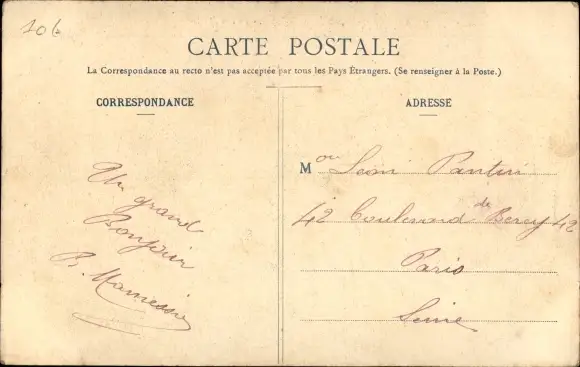 106
CARTE POSTALE
La Correspondance au recto n'est pas acceptée par tous les Pays Étrangers. (Se renseigner à la Poste.)
CORRESPONDANCE
Un grand
Bonjour
ADRESSE
M Leon Pantin
42 boulevard de Bercy 42
Paris
Seine